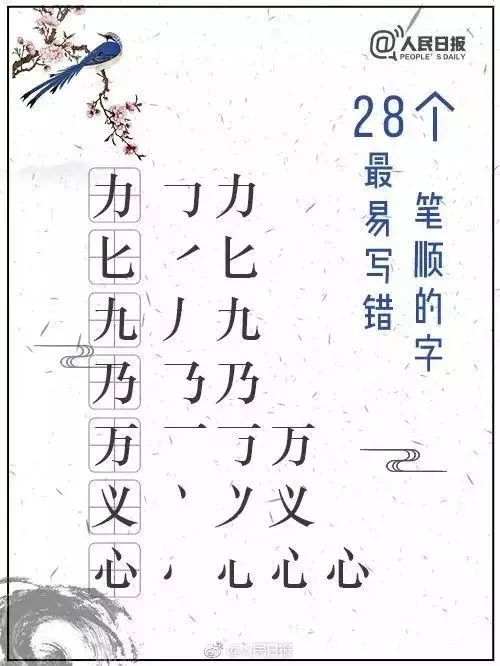 @人民日报
PEOPLE'S DAILY
28个
最易写错
笔顺的字
力 𠃌 力
匕 ㇒ 匕
九 丿 九
乃 𠄎 乃
万 一 万
义 丶 义
心 心
@人民日报